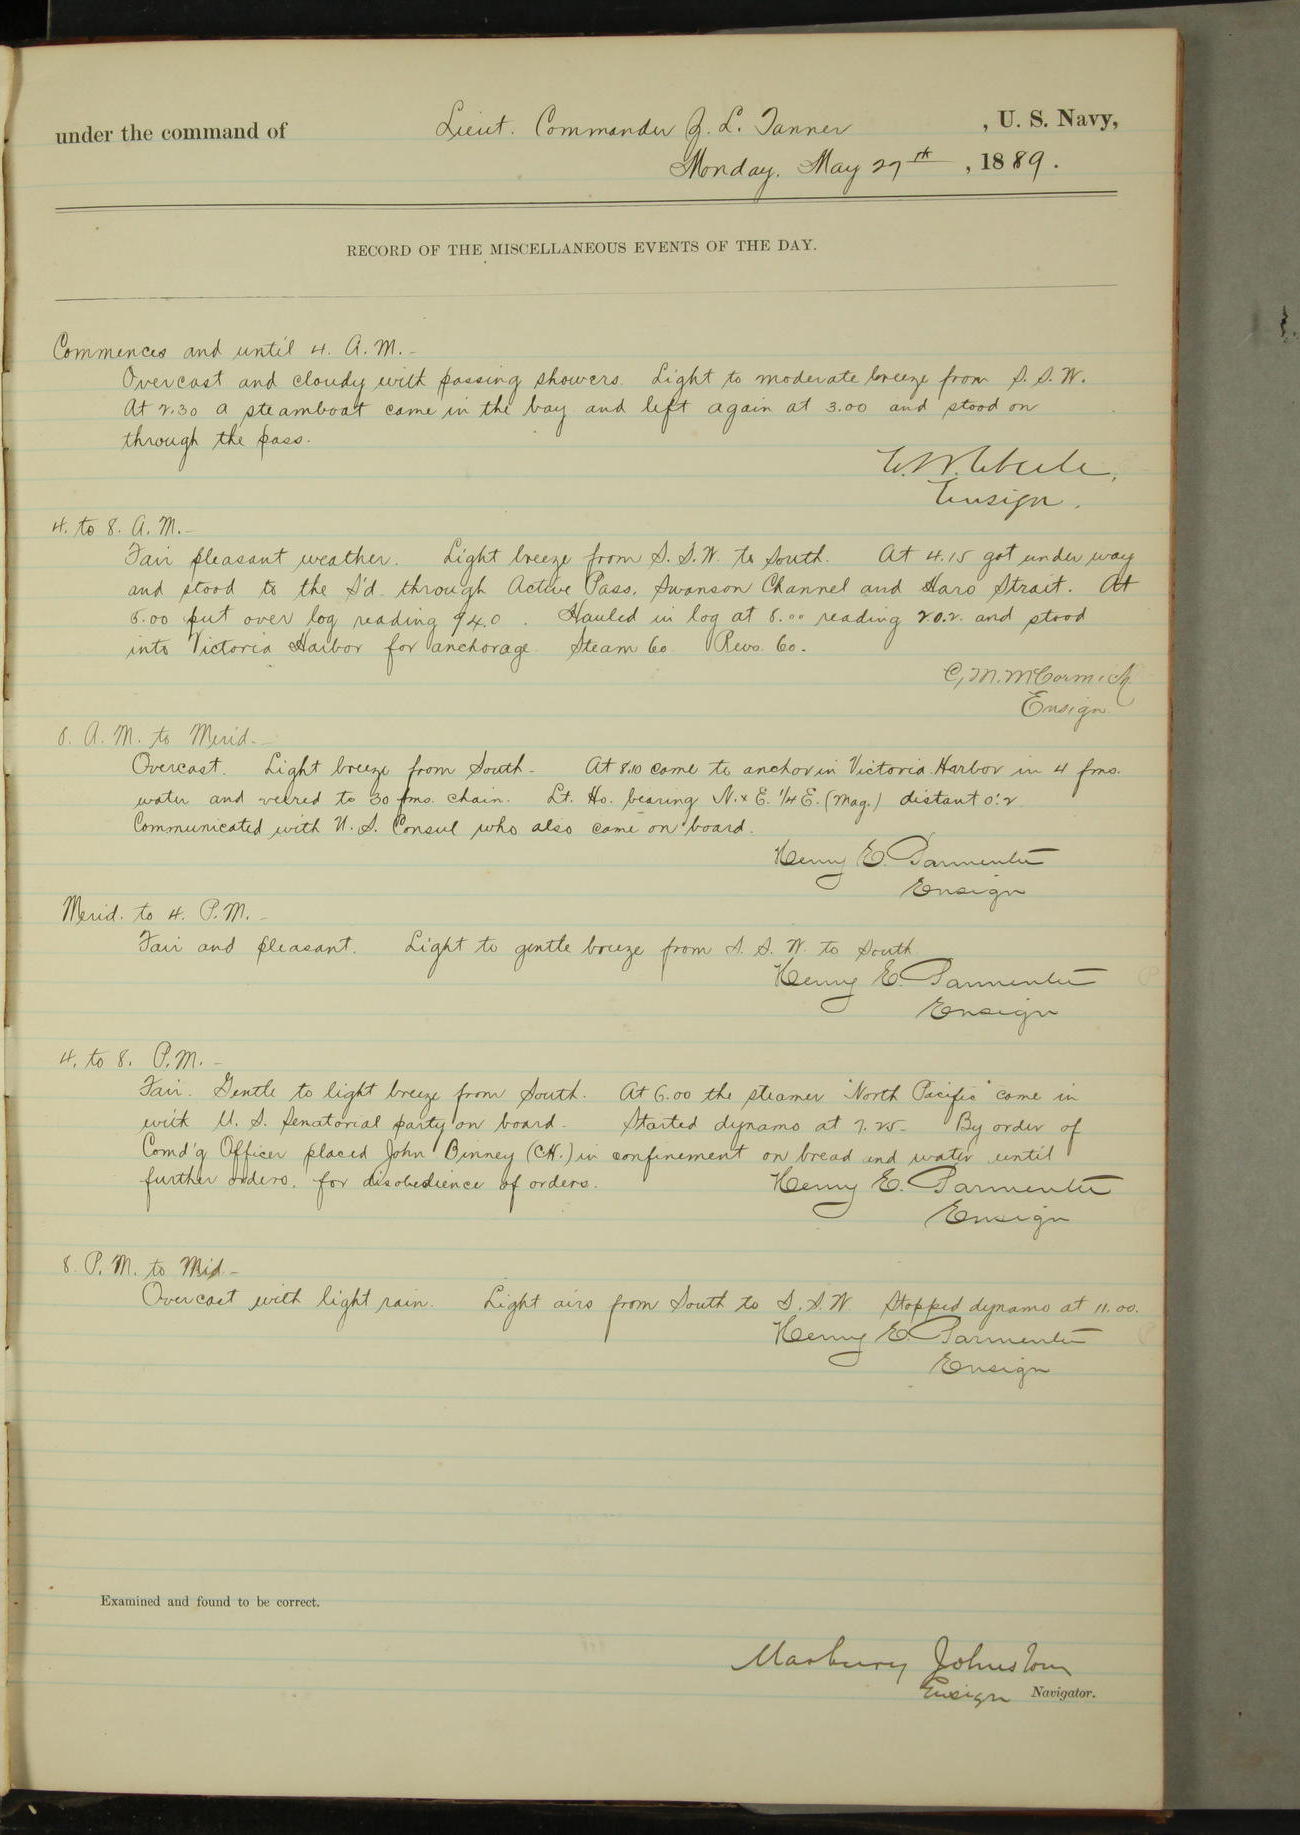 under the command of Lieut. Commander Z. L. Tanner, U. S. Navy,
Monday, May 27th, 1889.
RECORD OF THE MISCELLANEOUS EVENTS OF THE DAY.
Commences and until 4. A. M. –
Overcast and cloudy with passing showers. Light to moderate breeze from S. S. W.
At 2.30 a steamboat came in the bay and left again at 3.00 and stood on
through the pass.
E. W. Eberle,
Ensign.
4. to 8. A. M. –
Fair pleasant weather. Light breeze from S. S. W. to South. At 4.15 got under way
and stood to the S'd through Active Pass, Swanson Channel and Haro Strait. At
put over log reading 94.0. Hauled in log at 8.00 reading 20.2. and stood
into Victoria Harbor for anchorage. Steam 60. Revs. 60.
C, M. McCormick
Ensign
8. A. M. to Merid. –
Overcast. Light breeze from South – At 8.10 came to anchor in Victoria Harbor in 4 fms.
water and veered to 30 fms. chain. Lt. Ho. bearing N. x E. 1/4 E. (Mag.) distant 0'.2
Communicated with U. S. Consul who also came on board.
Henry E. Parmenter
Ensign
Merid. to 4. P. M. –
Fair and pleasant. Light to gentle breeze from S. S. W. to South
Henry E. Parmenter
Ensign
4. to 8. P. M. –
Fair. Gentle to light breeze from South. At 6.00 the steamer "North Pacific" came in
with U. S. Senatorial party on board – Started dynamo at 7.25 – By order of
Comd'g Officer placed John Binney in confinement on bread and water until
further orders, for disobedience of orders.
Henry E. Parmenter
Ensign
8. P. M. to Mid –
Overcast with light rain. Light airs from South to S. S. W. Stopped dynamo at 11.00.
Henry E. Parmenter
Ensign
Examined and found to be correct.
Marbury Johnston
Ensign Navigator.